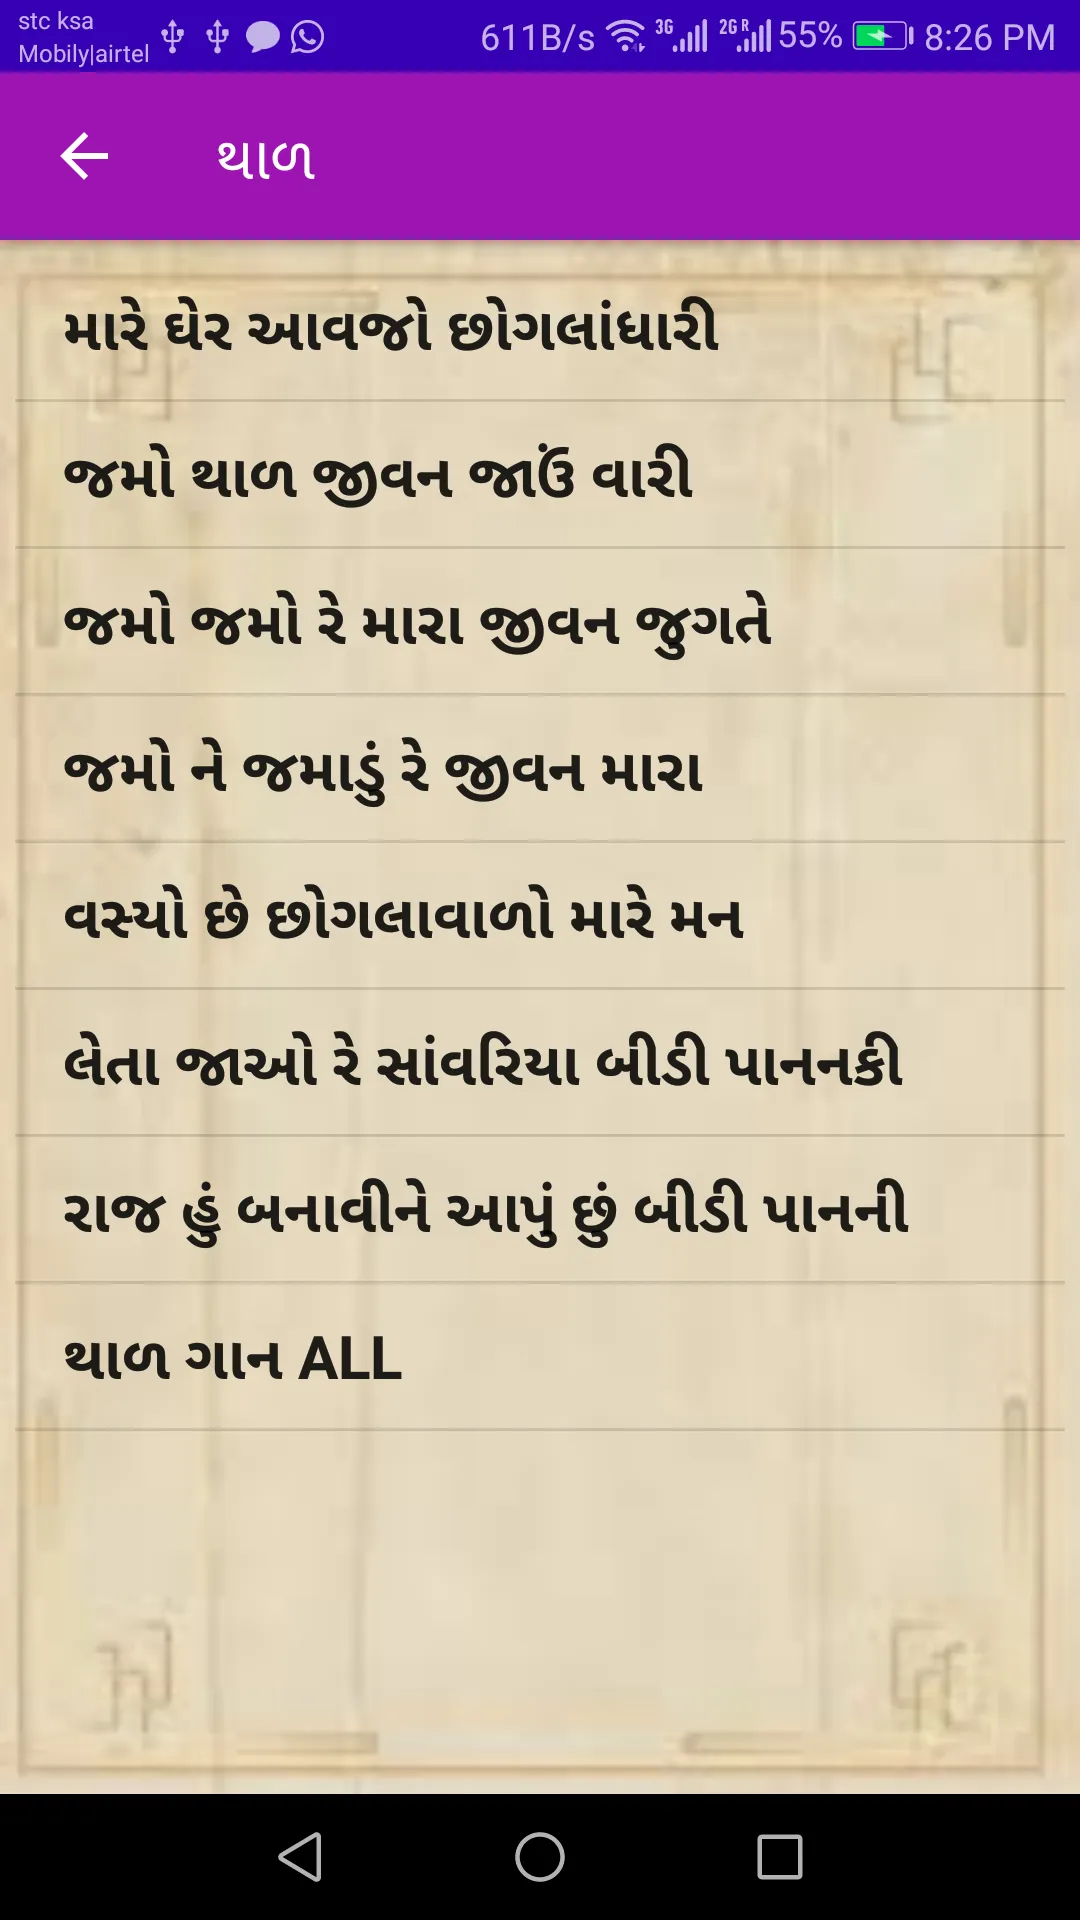 stc ksa
Mobily|airtel
611B/s 3G 2G R 55% 8:26 PM
થાળ
મારે ઘેર આવજો છોગલાંધારી
જમો થાળ જીવન જાઉં વારી
જમો જમો રે મારા જીવન જુગતે
જમો ને જમાડું રે જીવન મારા
વસ્યો છે છોગલાવાળો મારે મન
લેતા જાઓ રે સાંવરિયા બીડી પાનનકી
રાજ હું બનાવીને આપું છું બીડી પાનની
થાળ ગાન ALL